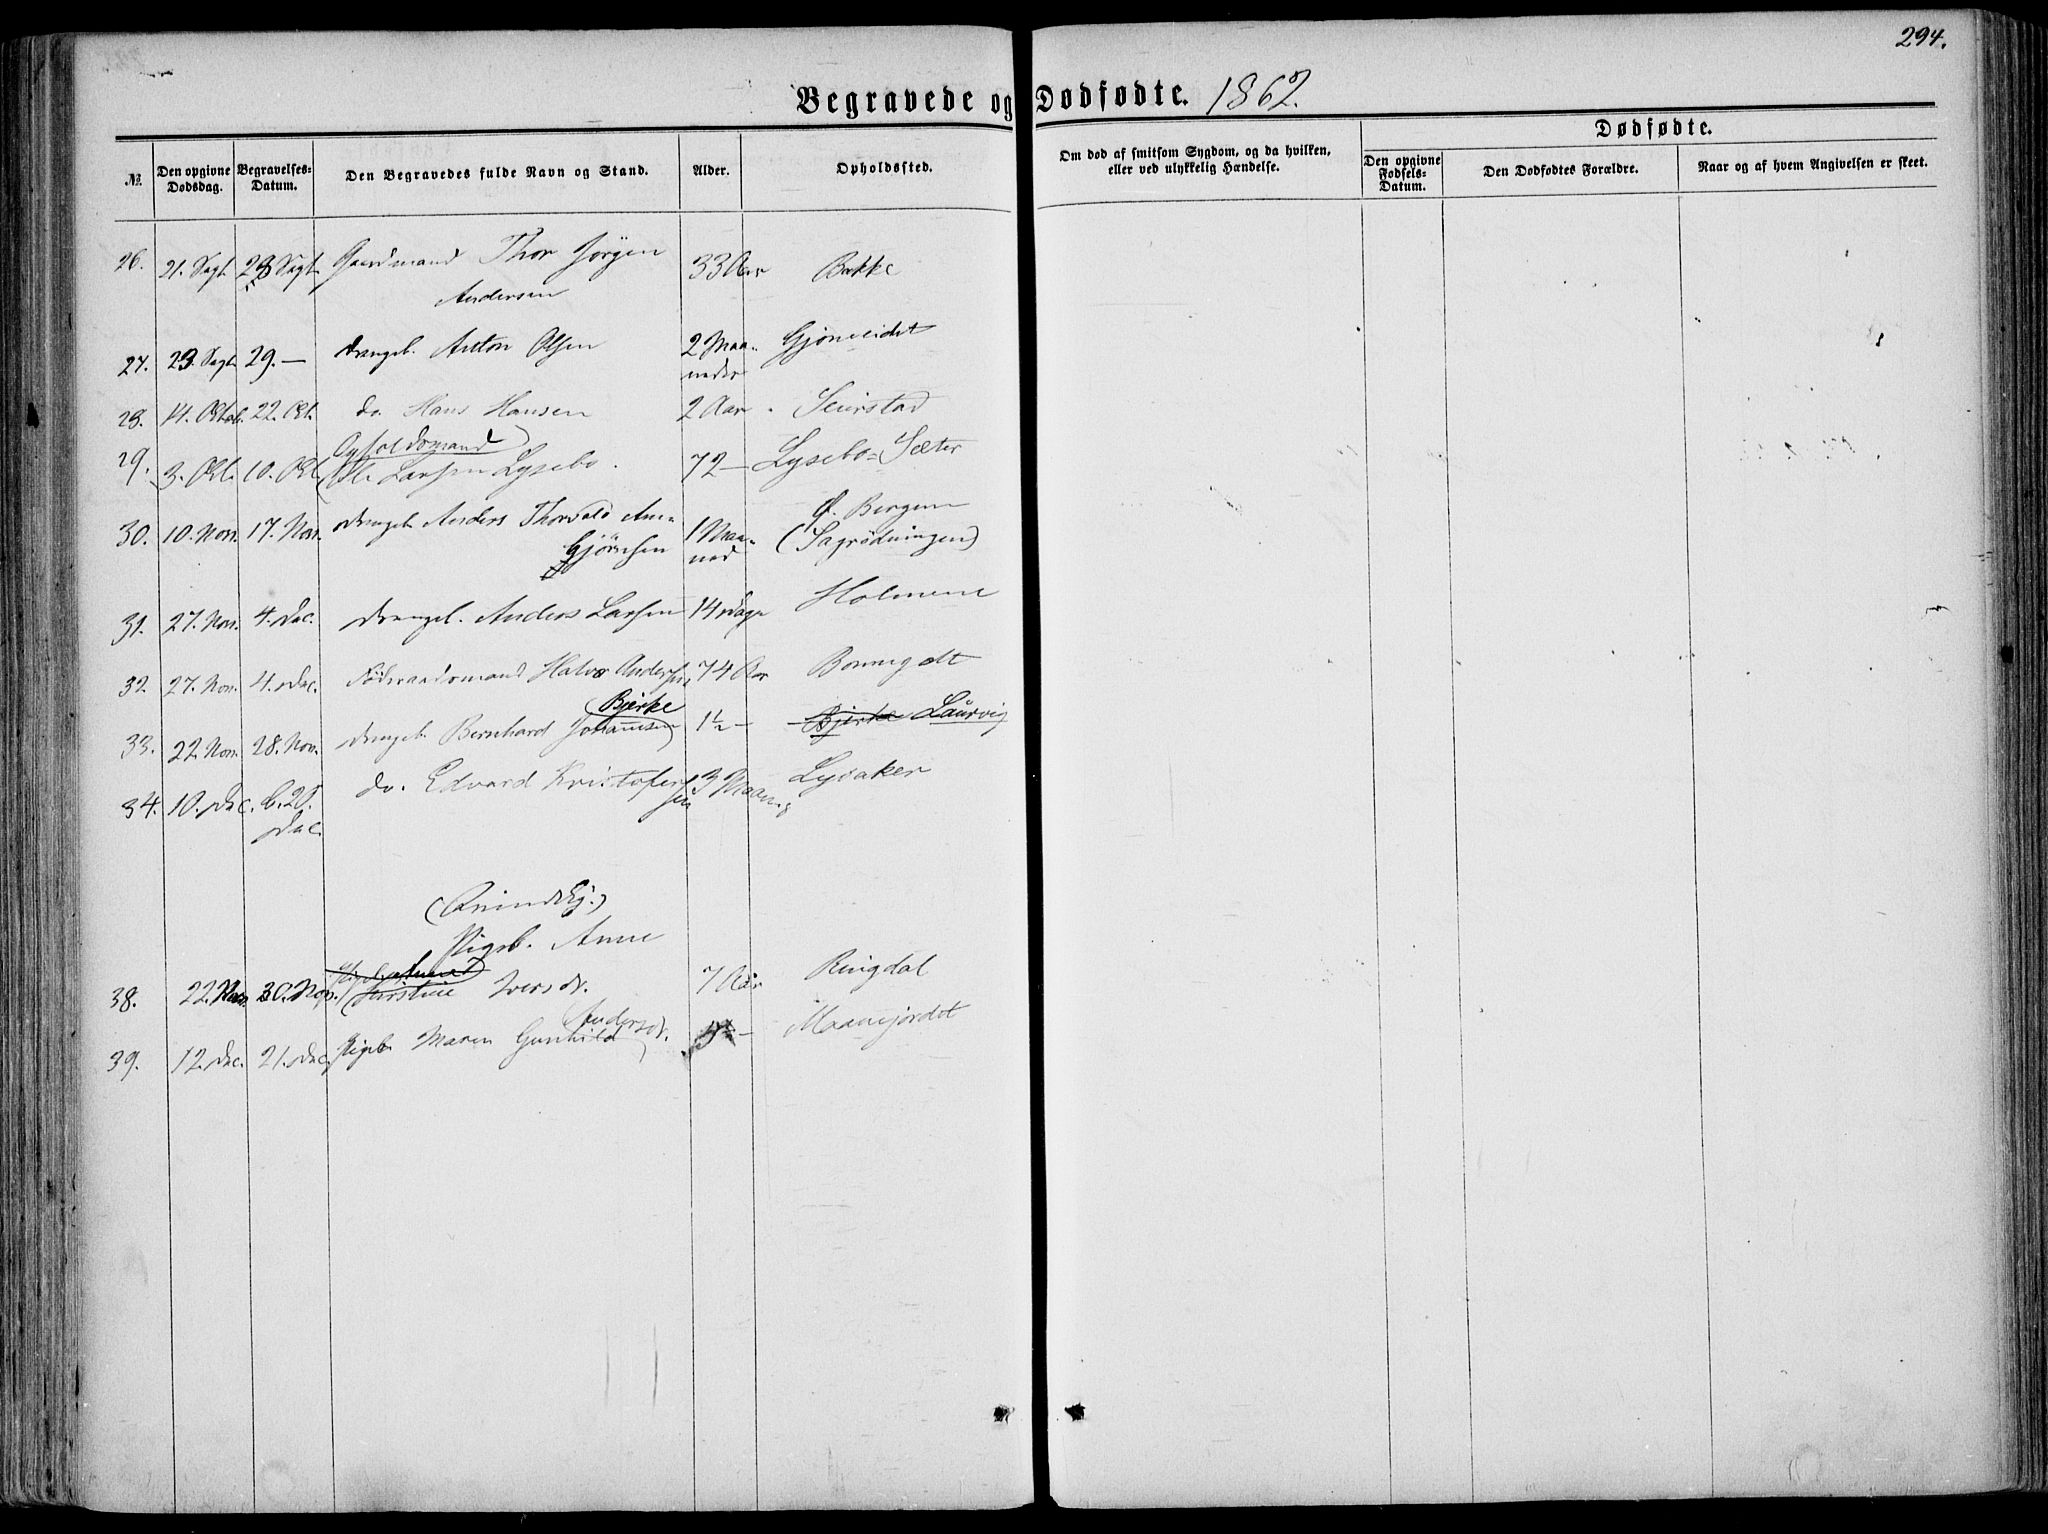 294.
Begravede og Dødfødte. 1862.
№ Den opgivne Dødsdag. Begravelses-Datum. Den Begravedes fulde Navn og Stand. Alder. Opholdssted. Om død af smitsom Sygdom, og da hvilken, eller ved ulykkelig Hændelse. Dødfødte. Den opgivne Fødsels-Datum. Den Dødfødtes Forældre. Naar og af hvem Angivelsen er skeet.
26. 21. Sept. 28 Sept. Gaardmand Thor Jørgen 33 Aar Bakke
Andersen
27. 23. Sept. 29. — Drengeb. Anton Olsen 2 Maa- Gjøneidet
neder
28. 14. Octob. 22. Oct. do. Hans Hansen 2 Aar Seierstad
Opholdsmand
29. 3. Oct. 10. Oct. Ole Larsen Lysebo. 72 — Lysebo-Sæter
30. 10. Nov. 17. Nov. Drengeb. Anders Thorvald An- 1 Maa- Ø. Bergene
Gjørnsen ned (Sagrödningen)
31. 27. Nov. 4. Dec. Drengeb. Anders Larsen 14 Dage Holmene
32. 27. Nov. 4. Dec. Föderaadsmand Halvor Andersen 74 Aar
Bjerke
33. 22. Nov. 28. Nov. Drengeb. Bernhard Johannesen 1½ — Bjerke Laurvig
34. 10. Dec. b. 20. Dec. do. Edvard Kristofersen 3 Maan. Lysaker
(Qvindekj.)
Pigeb. Anne
38. 22. Nov. 30. Nov. Kirstine Iversdr. 7 Aar Ringdal
Andersdr.
39. 12. Dec. 21. Dec. Pigeb. Maren Gunhild Maanejordet